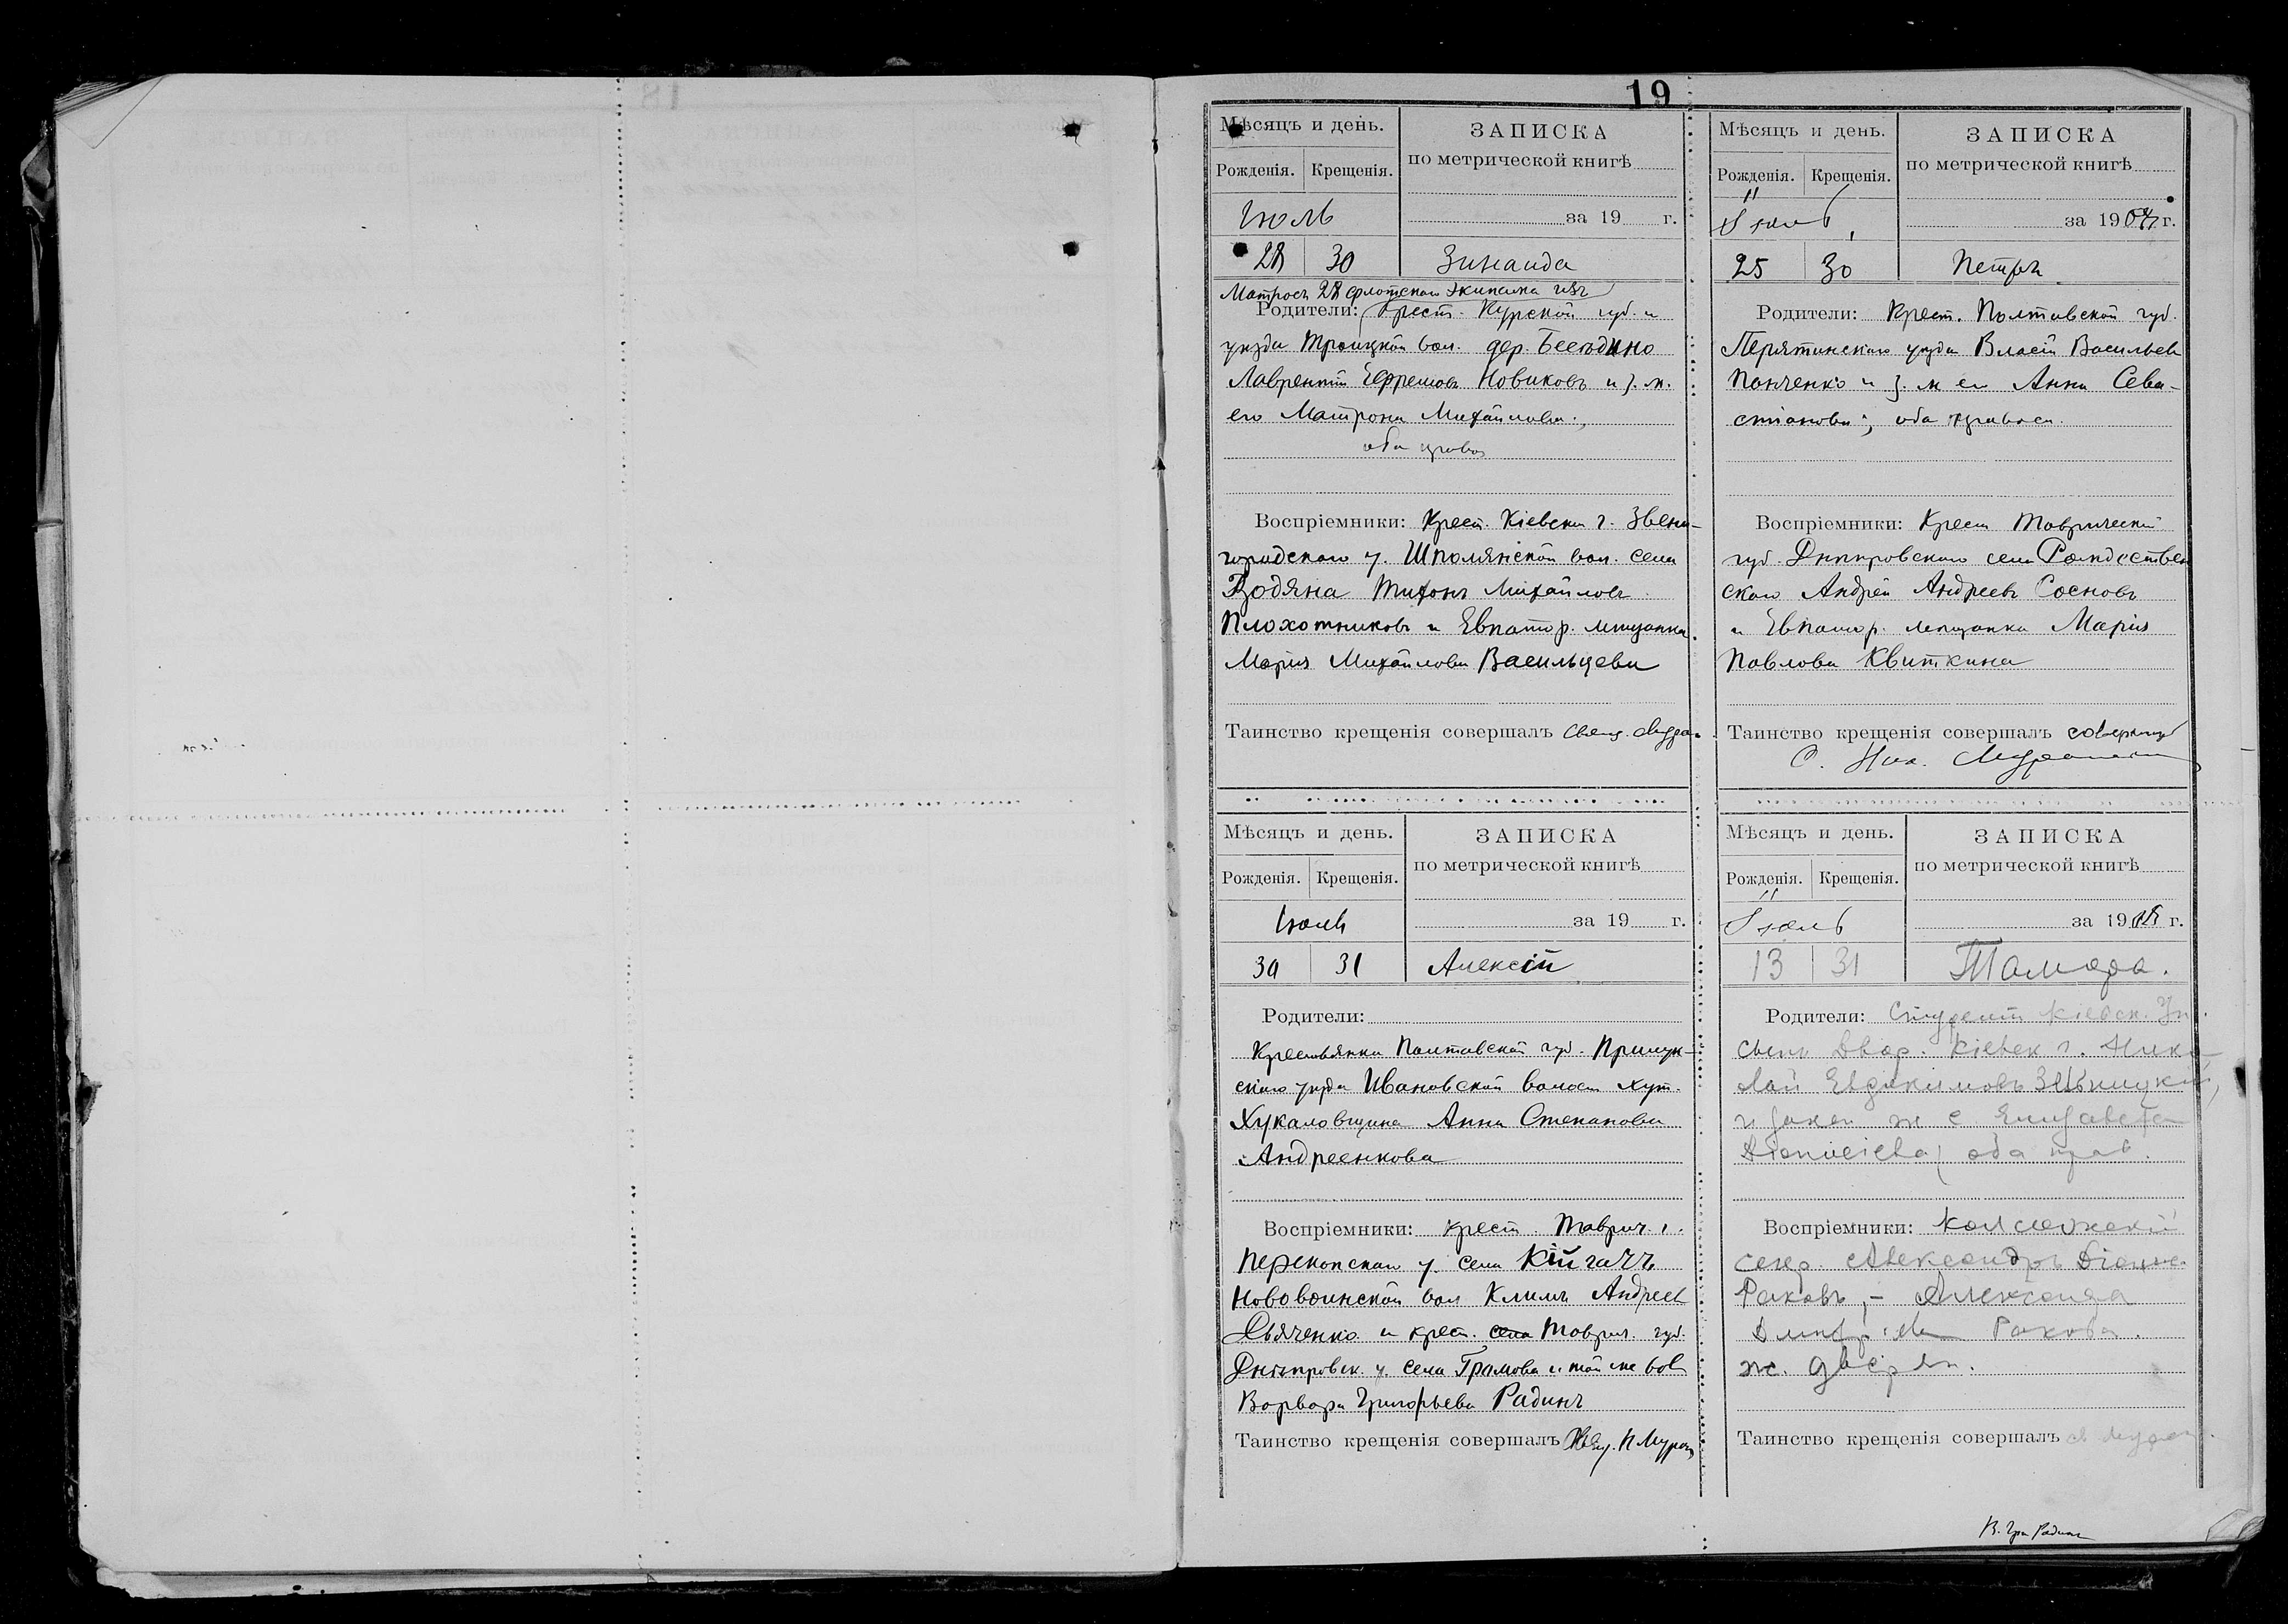 19
Мѣсяцъ и день.
Рожденія. Крещенія.
ЗАПИСКА
по метрической книгѣ
за 19 г.
Июль
28 30 Зинаида
Матросъ 28 флотскаго экипажа изъ
Родители: Крест. Курской губ. и
уезда Троицкой вол. дер. Беседино
Лаврентій Ефремовъ Новиковъ и з. ж.
его Матрона Михайлова;
оба правос
Воспріемники: Крест. Кіевской г. Звени-
городскаго у. Шполянской вол. села
Водяна Тихонъ Михайловъ
Плохотниковъ и Евпатор. мещанка
Марія Михайлова Васильцева
Таинство крещенія совершалъ Свящ.
Мѣсяцъ и день.
Рожденія. Крещенія.
ЗАПИСКА
по метрической книгѣ
за 1904 г.
Іюль
25 30 Петръ
Родители: Крест. Полтавской губ.
Пирятинскаго уезда Власій Васильев
Панченко и з. ж его Анна Сева-
стіанова; оба правосл.
Воспріемники: Крест Таврической
губ. Днепровскаго села Рождествен
скаго Андрей Андреевъ Сосновъ
и Евпатор. мещанка Марія
Павлова Квиткина
Таинство крещенія совершалъ
С. Ник.
Мѣсяцъ и день.
Рожденія. Крещенія.
ЗАПИСКА
по метрической книгѣ
за 19 г.
Июль
30 31 Алексій
Родители:
Крестьянка Полтавской губ. Прилук-
скаго уезда Ивановской волост хут.
Хукаловщина Анна Степанова
Андреенкова
Воспріемники: крест. Таврич. г.
Перекопскаго у. села Кійгачъ
Нововоинской вол Климъ Андреев
Дьяченко и крест. Таврич. губ.
Днѣпровск. у. села Громова и той же вол
Варвара Григорьева Радинъ
Таинство крещенія совершалъ Свящ. Н Мура
Мѣсяцъ и день.
Рожденія. Крещенія.
ЗАПИСКА
по метрической книгѣ
за 19 г.
Іюль
13 31 Тамара.
Родители: Студентъ Кіевск. Ун.
сынъ Двор. Кіевск г. Нико-
лай Евдокимовъ
и закон ж е Елизавета
Діонисіева, оба прав.
Воспріемники: Коллежскій
секр. Александръ
Раковъ, – Александра
Ракова.
ж. дворян.
Таинство крещенія совершалъ
В. Гри Радинъ